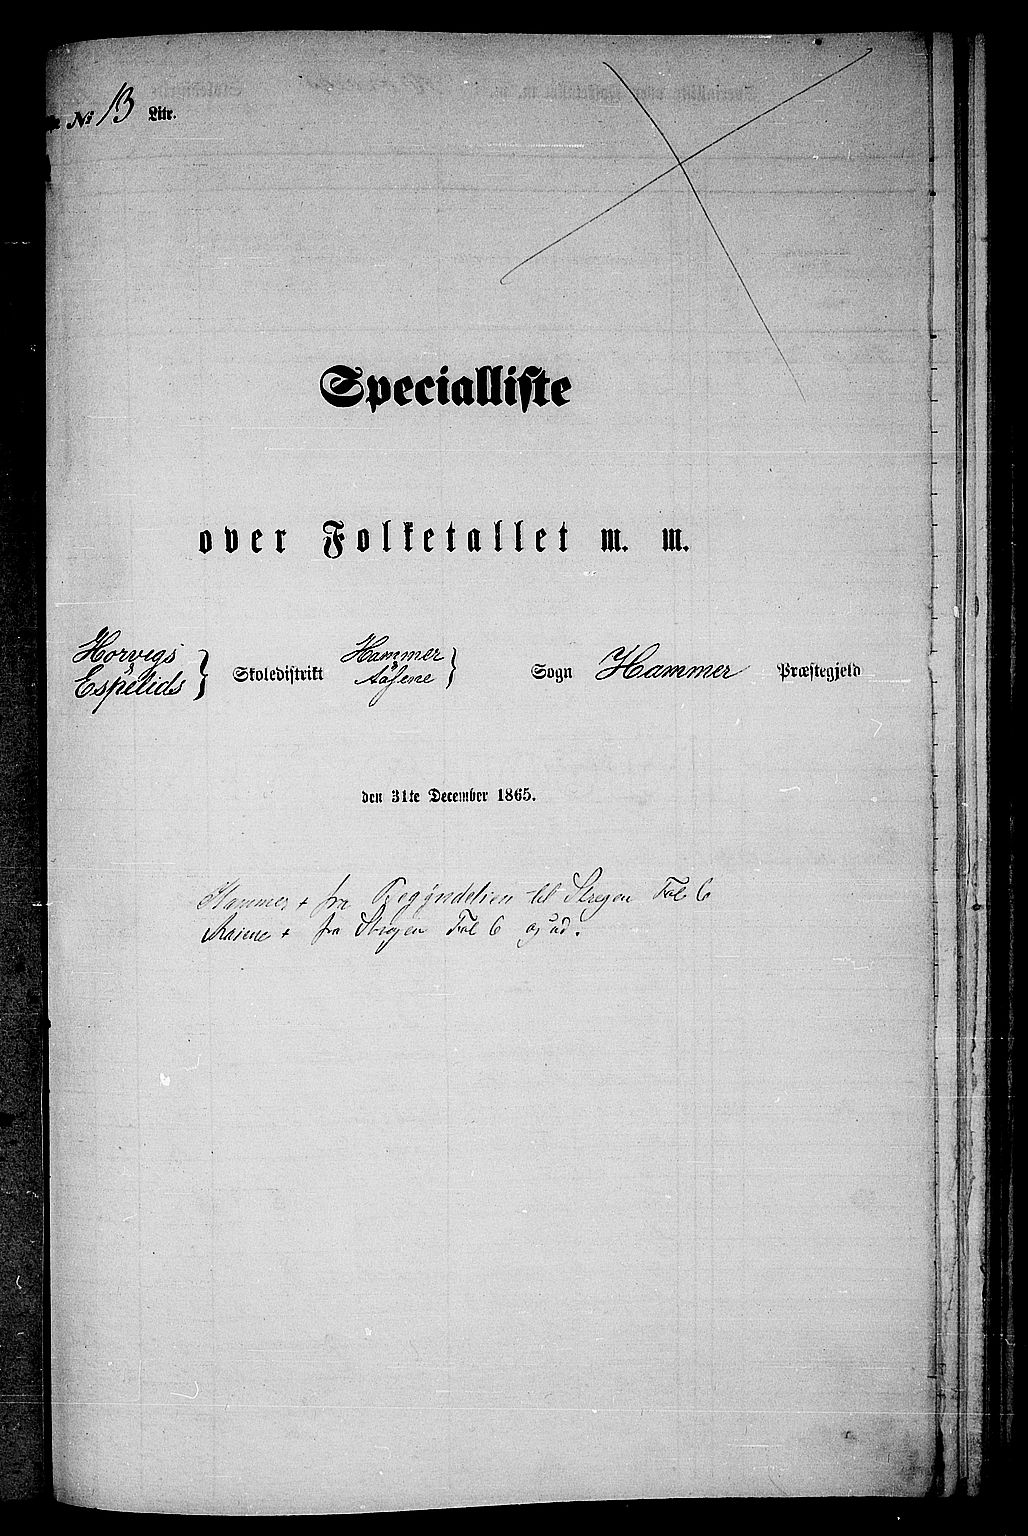 № 13 Litr.
Specialliste
over Folketallet m. m.
Horvigs & Espelids } Skoledistrikt Hammer & Aasene } Sogn Hammer Præstegjeld
den 31te December 1865.
Hammer + fra Begyndelsen til Stregen Fol 6
Aasene + fra Stregen Fol 6 og ud.